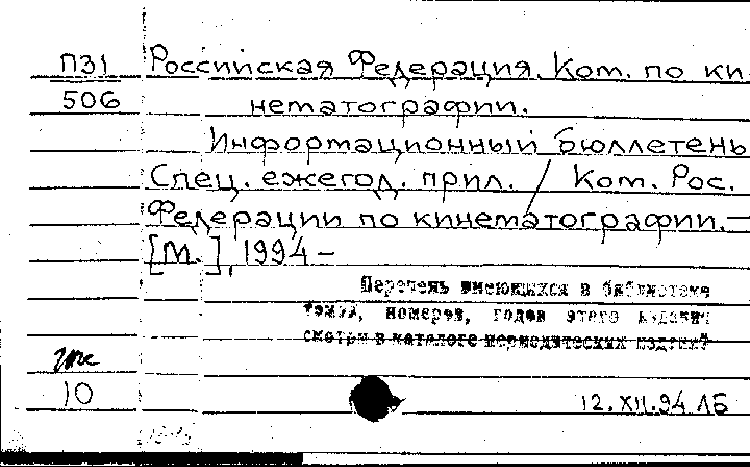 П31 Российская Федерация. Ком. по ки-
506 нематографии.
Информационный бюллетень
Спец. ежегод. прил. / Ком. Рос.
Федерации по кинематографии. —
[М.], 1994 —
Перечень имеющихся в библиотеке
томов, номеров, годов этого издания
смотри в каталоге периодических изданий
10
12.XII.94 ЛБ